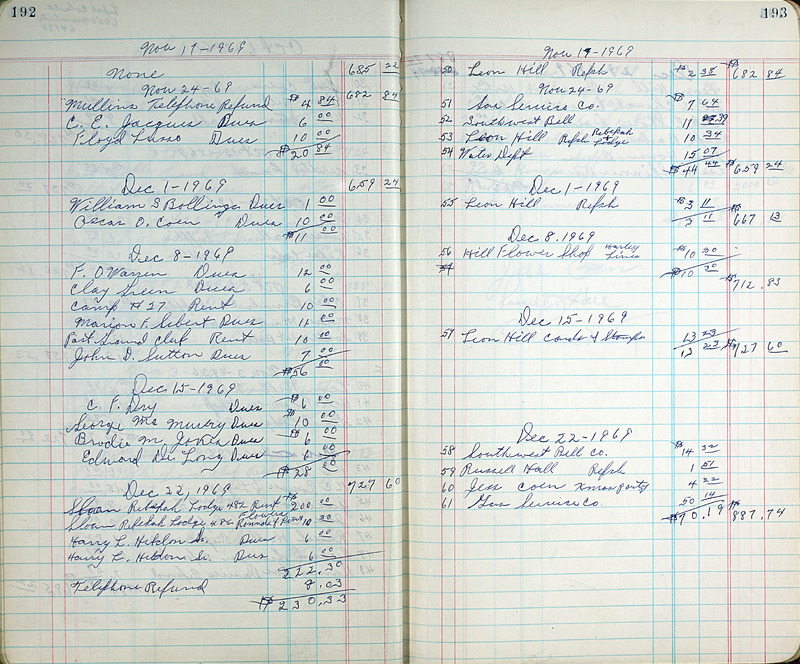 192
Nov 17-1969
None 685 22
Nov 24-69
Mullins Telephone Refund $4 84 682 84
C. E. Jacques Dues 6 00
Floyd Lusso Dues 10 00
$20 84
Dec 1-1969 659 24
William S Bollinger Dues 1 00
Oscar O. Coen Dues 10 00
$11 00
Dec 8-1969
F. O Warren Dues 12 00
Clay Green Dues 6 00
Camp #27 Rent 10 00
Marion F. Sebert Dues 11 00
Past Grand Club Rent 10 00
John D. Sutton Dues 7 00
$56 00
Dec 15-1969
C. F. Dry Dues $6 00
George Mc Murry Dues $10 00
Brodie M. Jones Dues $6 00
Edward De Long Dues 6 00
$28 00
Dec 22, 1969 727 60
Sloan Rebekah Lodge 482 Rent $200 00
Sloan Rebekah Lodge 486 Flowers 10 30
Harry L. Hibdon Jr. Dues 6 00
Harry L. Hibdon Sr. Dues 6 00
222.30
Telephone Refund 8.03
$230.33
193
Nov 17-1969
50 Leon Hill Refsh $2 38 $682 84
Nov 24-69
51 Gas Service Co. $7 64
52 Southwest Bell 11 39
53 Leon Hill Refsh Rebekah + Lodge 10 34
54 Water Dept 15 07
$44 44 $659 24
Dec 1-1969
55 Leon Hill Refsh $3 11
3 11 $667 13
Dec 8.1969
56 Hill Flower Shop Harley $10 30
$10 30
$712.83
Dec 15-1969
57 Leon Hill cards & Stamps 13 23
13 23 $727 60
Dec 22-1969
58 Southwest Bell Co. $14 32
59 Russell Hall Refsh 1 51
60 Jess Coen Xmas party 4 22
61 Gas Service Co 50 14
$70.19 $887.74